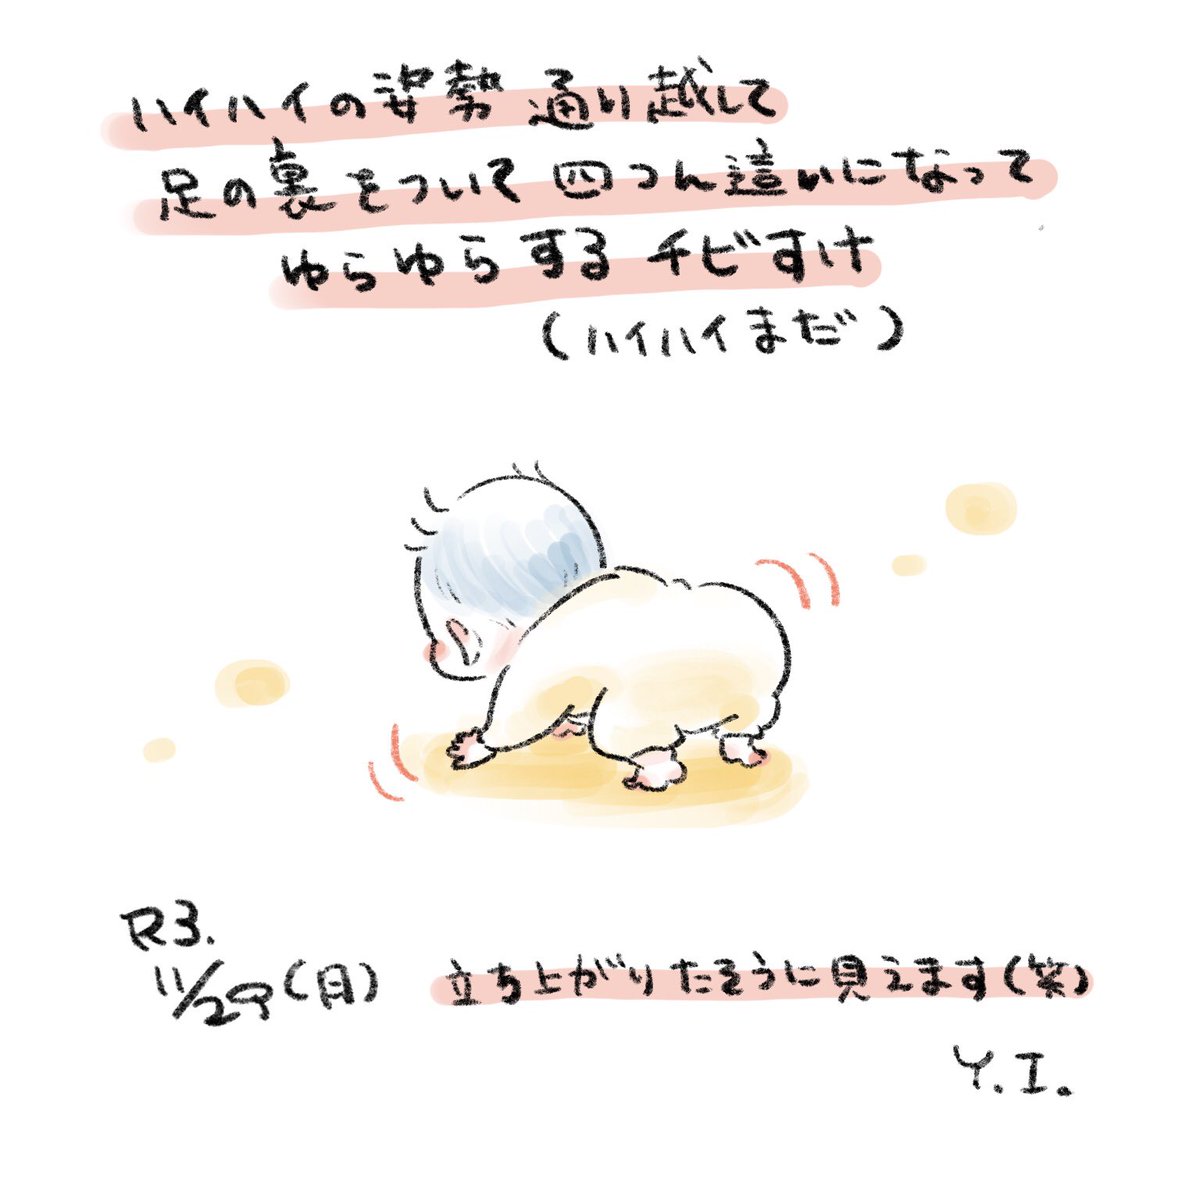 ハイハイの姿勢 通り越して
足の裏をついて 四つん這いになって
ゆらゆらする チビすけ
(ハイハイまだ)
R3.
11/29(月) 立ち上がりたそうに見えます(笑)
Y.I.